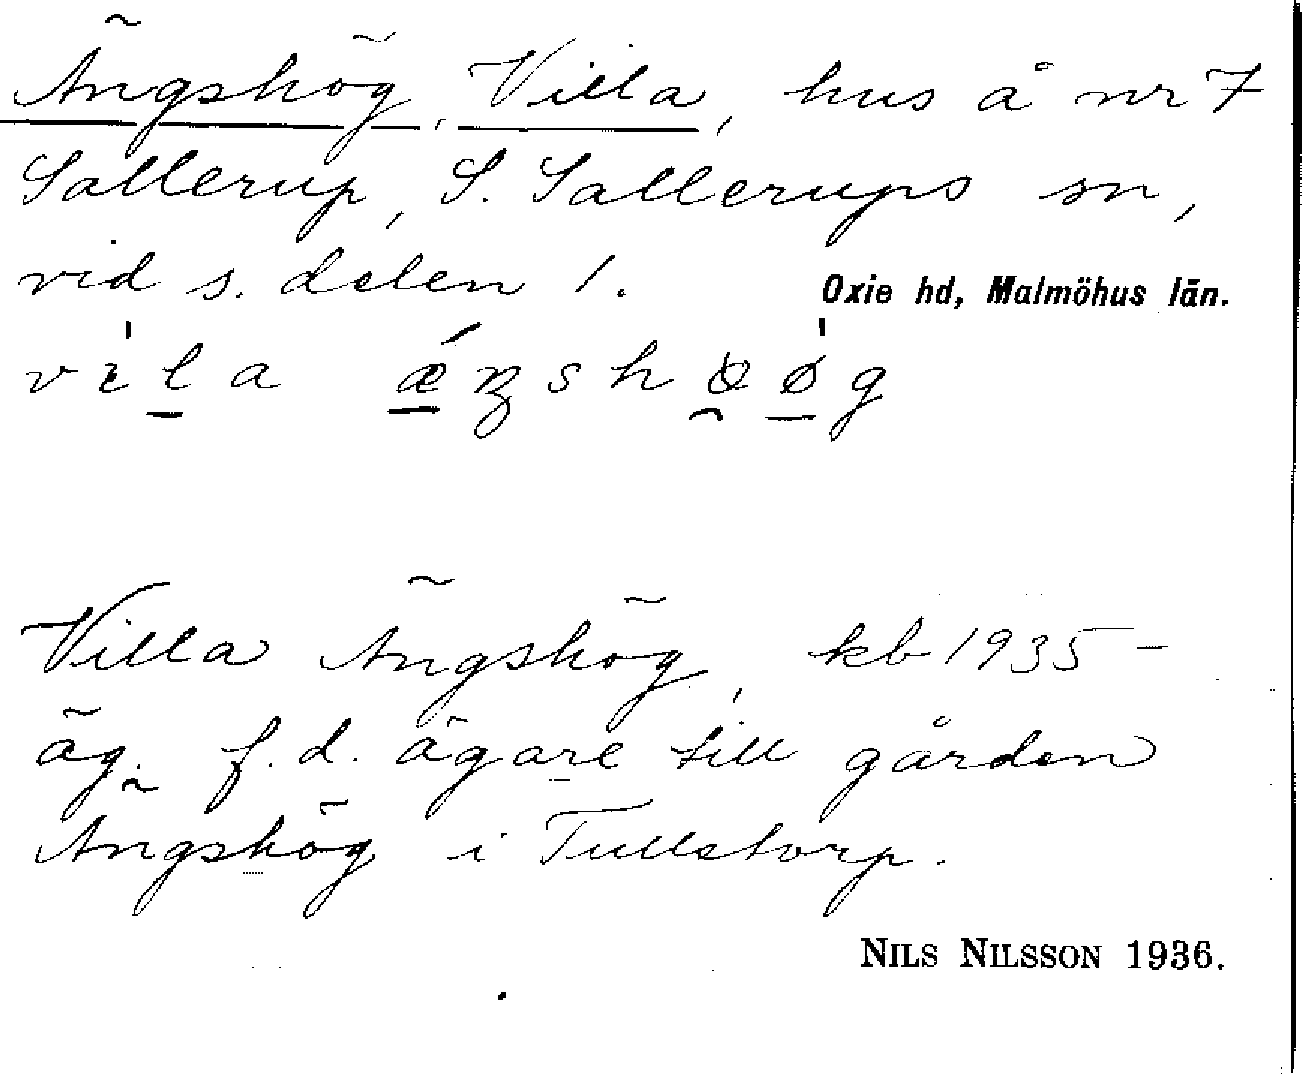 Ängshög, Villa, hus å nr 7
Sallerup, S. Sallerups sn,
vid s. delen 1.
Oxie hd, Malmöhus län.
Villa Ängshög, kb 1935 –
äg. f.d. ägare till gården
Ängshög i Tullstorp.
NILS NILSSON 1936.